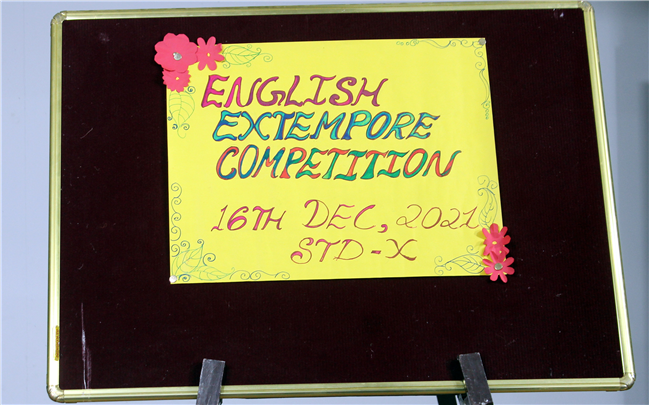 ENGLISH
EXTEMPORE
COMPETITION
16TH DEC, 2021
STD-X